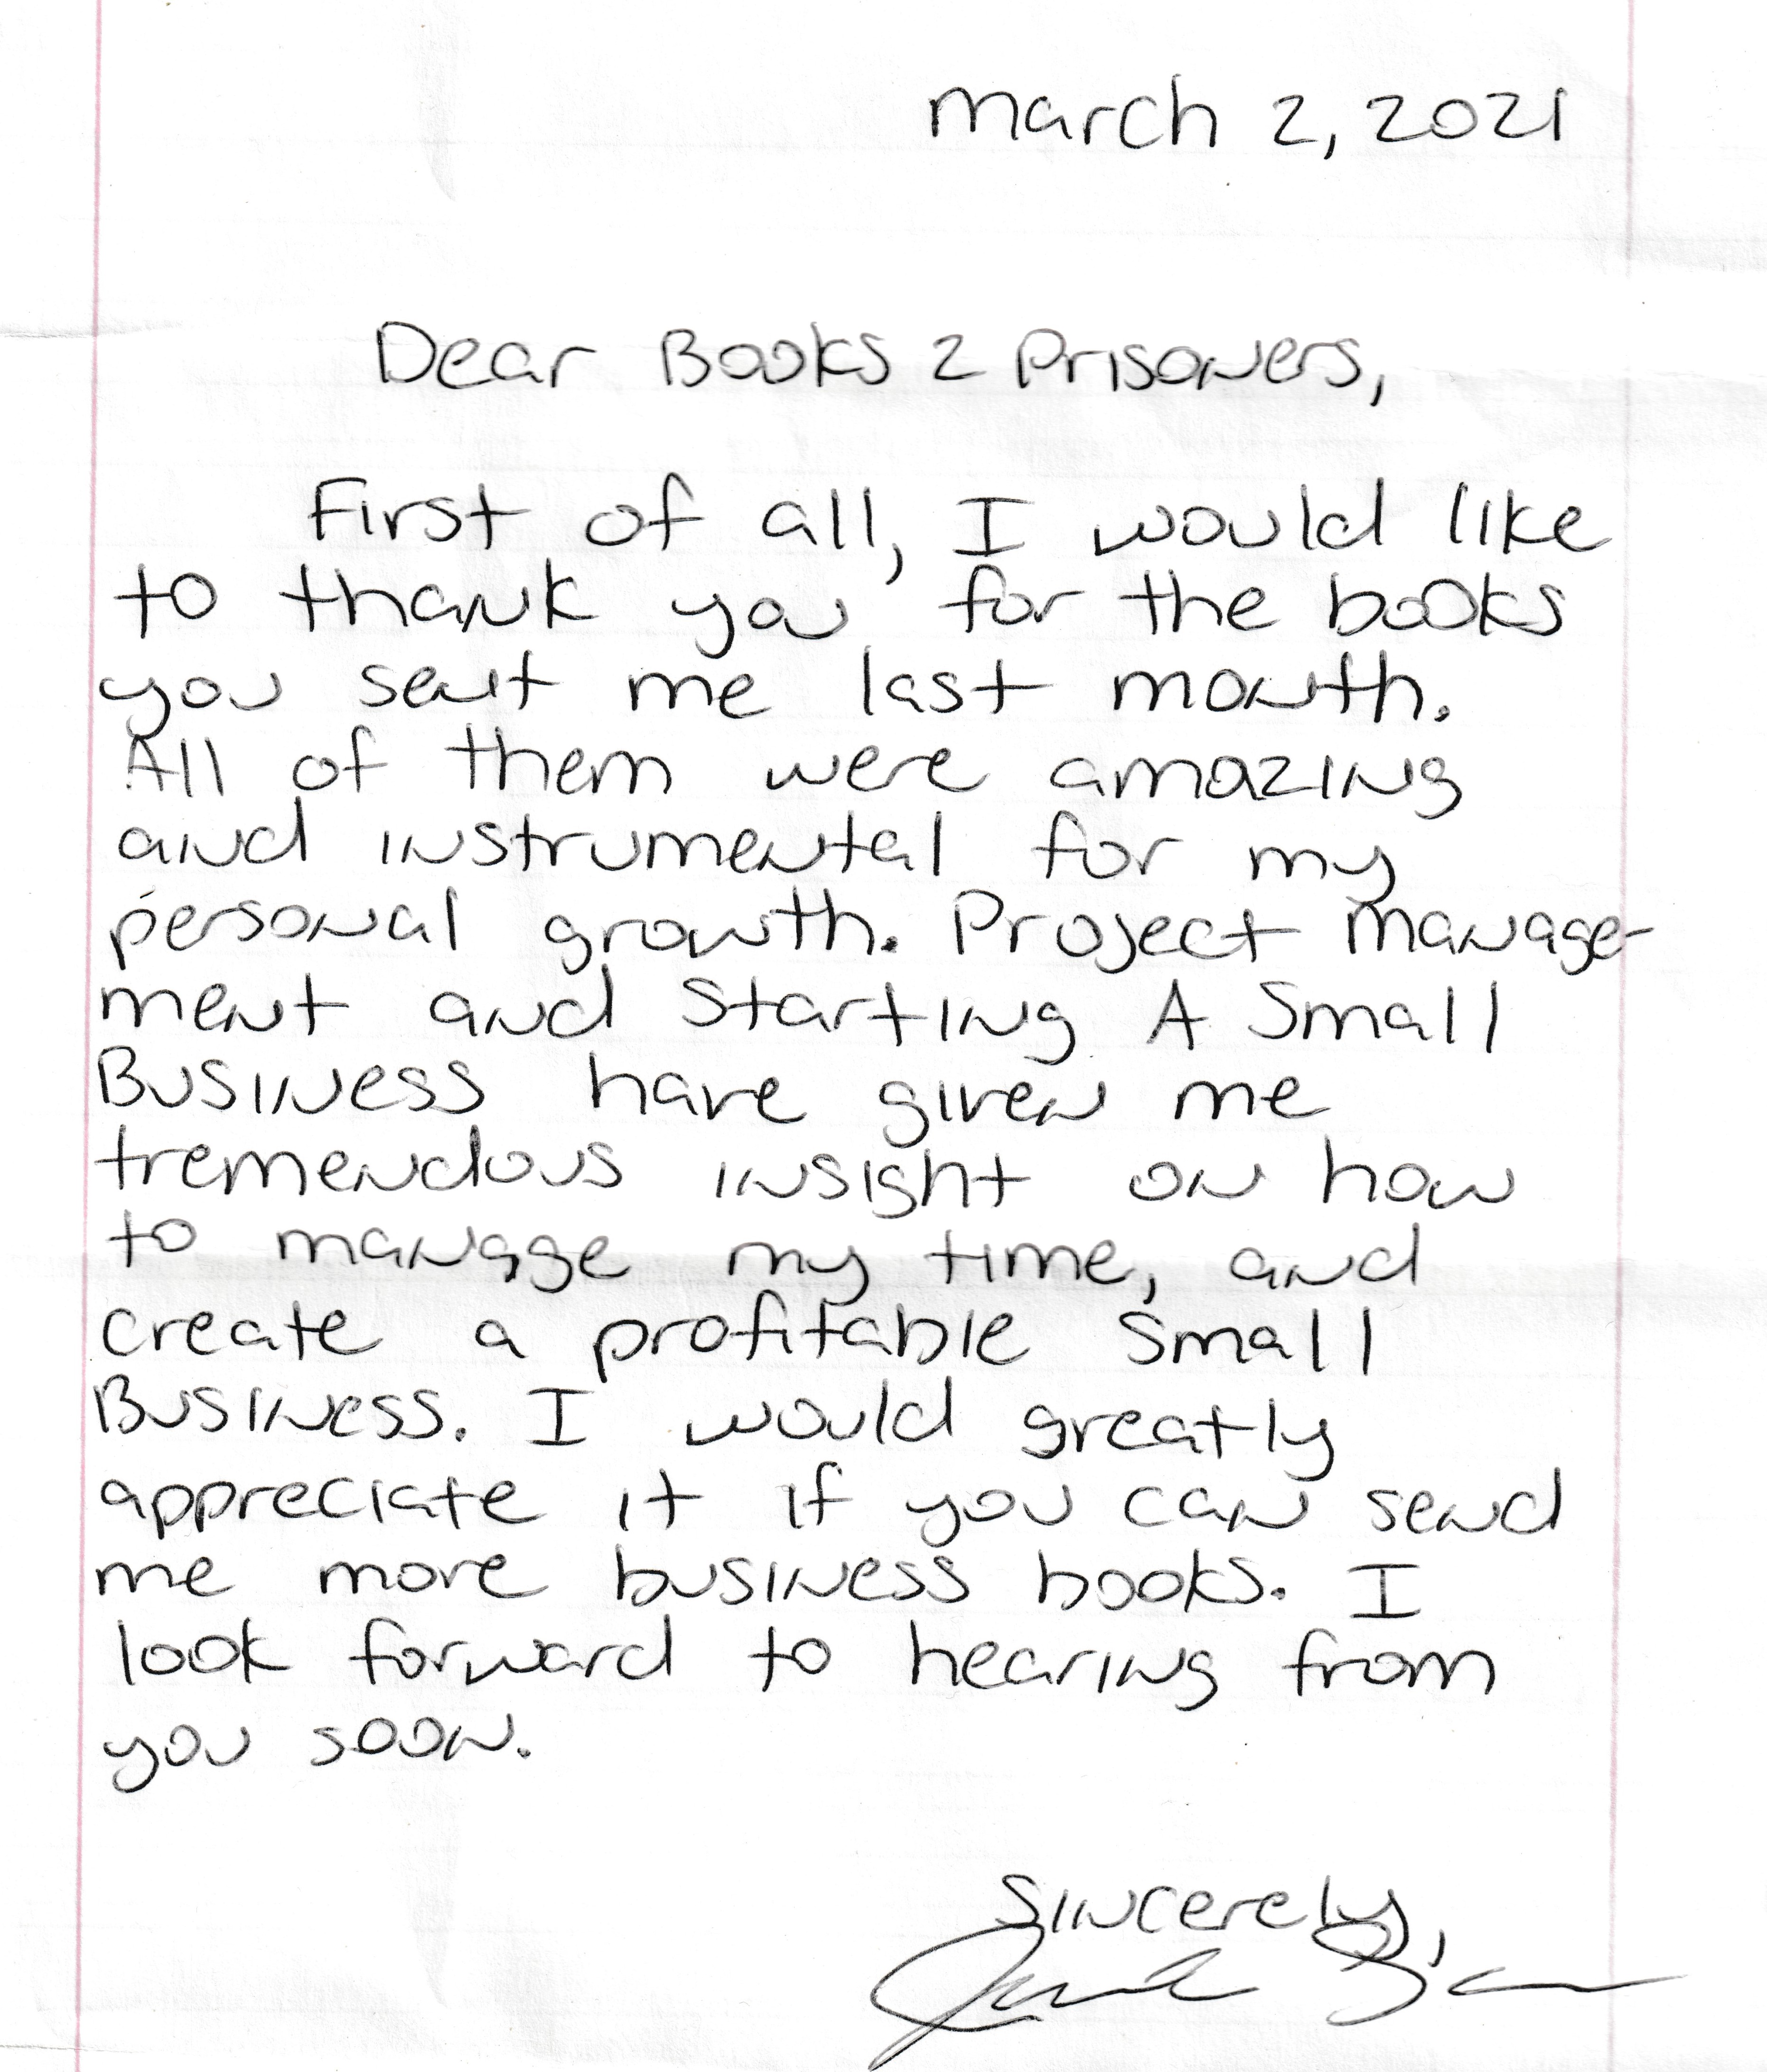 March 2, 2021
Dear Books 2 Prisoners,
First of all, I would like
to thank you for the books
you sent me last month.
All of them were amazing
and instrumental for my
personal growth. Project Manage-
ment and Starting A Small
Business have given me
tremendous insight on how
to manage my time, and
create a profitable Small
Business. I would greatly
appreciate it if you can send
me more business books. I
look forward to hearing from
you soon.
Sincerely,